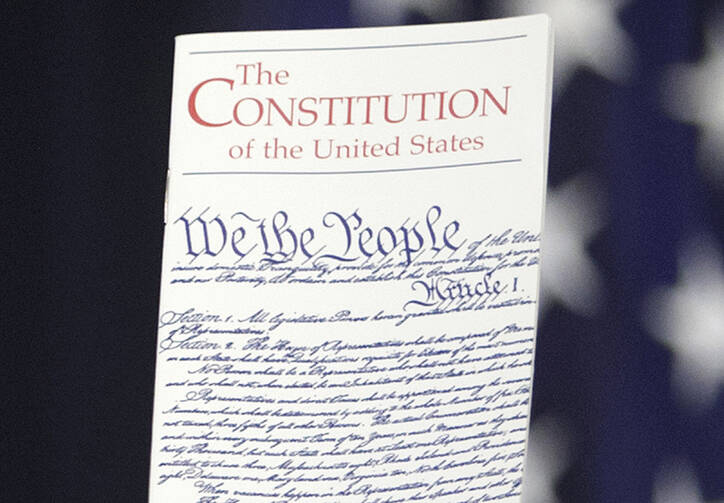 The
CONSTITUTION
of the United States
We the People of the
insure domestic Tranquility, provide for the common defence,
and our Posterity, do ordain and establish this Constitution for the
Article I.
Section 1. All legislative Powers herein granted shall be vested in
of Representatives.
Section 2. The House of Representatives shall be composed of
in each State shall have Qualifications requisite for Electors of the most numerous
No Person shall be a Representative who shall not have attained to
and who shall not, when elected, be an Inhabitant of that State in which he
Representatives and direct Taxes shall be apportioned among the
Numbers, which shall be determined by adding to the whole Number of free
not taxed, three fifths of all other Persons. The actual Enumeration shall be
and within every subsequent Term of ten Years, in such Manner as they
thirty Thousand, but each State shall have at Least one Representative;
entitled to chuse three, Massachusetts eight, Rhode Island and Providence
eight, Delaware one, Maryland six, Virginia ten, North Carolina five,
When vacancies happen in the Representation from any State, the